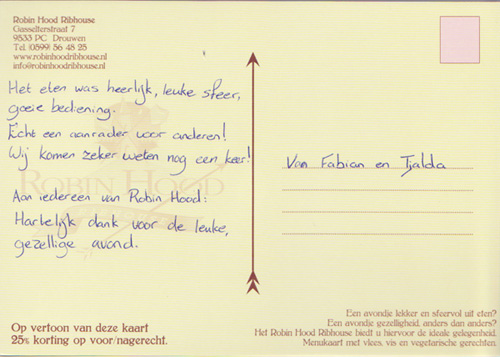 Robin Hood Ribhouse
Gasselterstraat 7
9533 PC Drouwen
Tel. (0599) 56 48 25
www.robinhoodribhouse.nl
info@robinhoodribhouse.nl
Het eten was heerlijk, leuke sfeer,
goeie bediening.
Echt een aanrader voor anderen!
Wij komen zeker weten nog een keer!
ROBIN HOOD
Aan iedereen van Robin Hood:
Hartelijk dank voor de leuke,
gezellige avond.
Van Fabian en Tjalda
Op vertoon van deze kaart
25% korting op voor/nagerecht.
Een avondje lekker en sfeervol uit eten?
Een avondje gezelligheid, anders dan anders?
Het Robin Hood Ribhouse biedt u hiervoor de ideale gelegenheid.
Menukaart met vlees, vis en vegetarische gerechten.